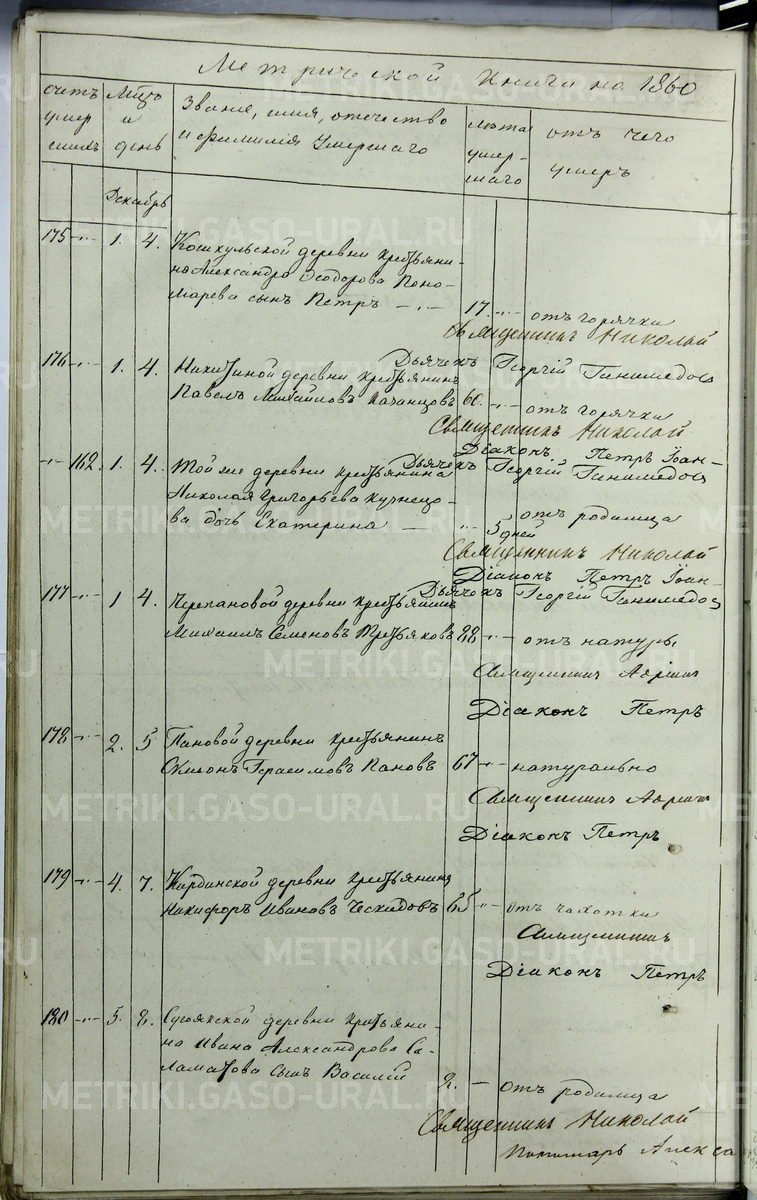 Метрической книги на 1860
Счетъ умершихъ
Мѣсъ и день
Званіе, имя, отечество и фамилія Умершаго
Лѣта умершаго
отъ чего умеръ
Декабрь
175 1. 4. Кошкульской деревни крестьяни-
на Александра Ѳеодорова Поно-
марева сынъ Петръ 17 отъ горячки
Священникъ Николай
Дьячекъ Георгій Ганимедов
176 1. 4. Никитиной деревни крестьянинъ
Павелъ Михайловъ Казанцовъ 60. отъ горячки
Священникъ Николай
Діаконъ Петръ Іоан-
Дьячекъ Георгій Ганимедов
162. 1. 4. Той же деревни крестьянина
Николая Григорьева Кузнецо-
ва дочь Екатерина 5 дней отъ родимца
Священникъ Николай
Діаконъ Петръ Іоан-
Дьячекъ Георгій Ганимедов
177 1 4. Черепановой деревни крестьянинъ
Михаилъ Семеновъ Третьяковъ 88 отъ натуры
Священникъ Адріан
Діаконъ Петръ
178 2. 5 Пановой деревни крестьянинъ
Герасимовъ Пановъ 67 натурально
Священникъ Адріан
Діаконъ Петръ
179 4. 7. деревни крестьянинъ
Никифоръ Ивановъ 65 отъ чахотки
Священникъ
Діаконъ Петръ
180 5. 8. Сугоякской деревни крестьяни-
на Ивана Александрова Са-
ламатова сынъ Василій 2. отъ родимца
Священникъ Николай
Пономарь Алекса
METRIKI.GASO-URAL.RU